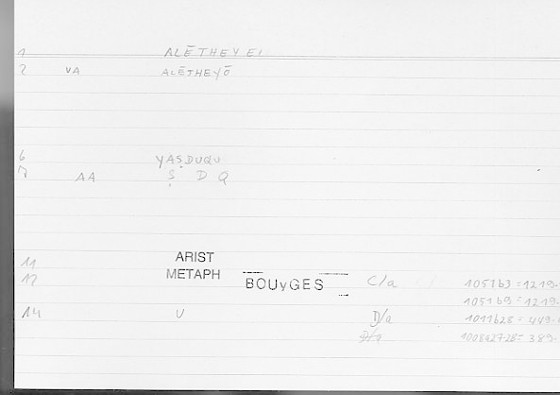 1 ALĒTHEYEI
2 VA ALĒTHEYŌ
6 YAṢDUQU
7 AA Ṣ D Q
11 ARIST
12 METAPH BOUyGES C/a 105163=1219-
105169=1219-
14 V D/a 1011628=449-